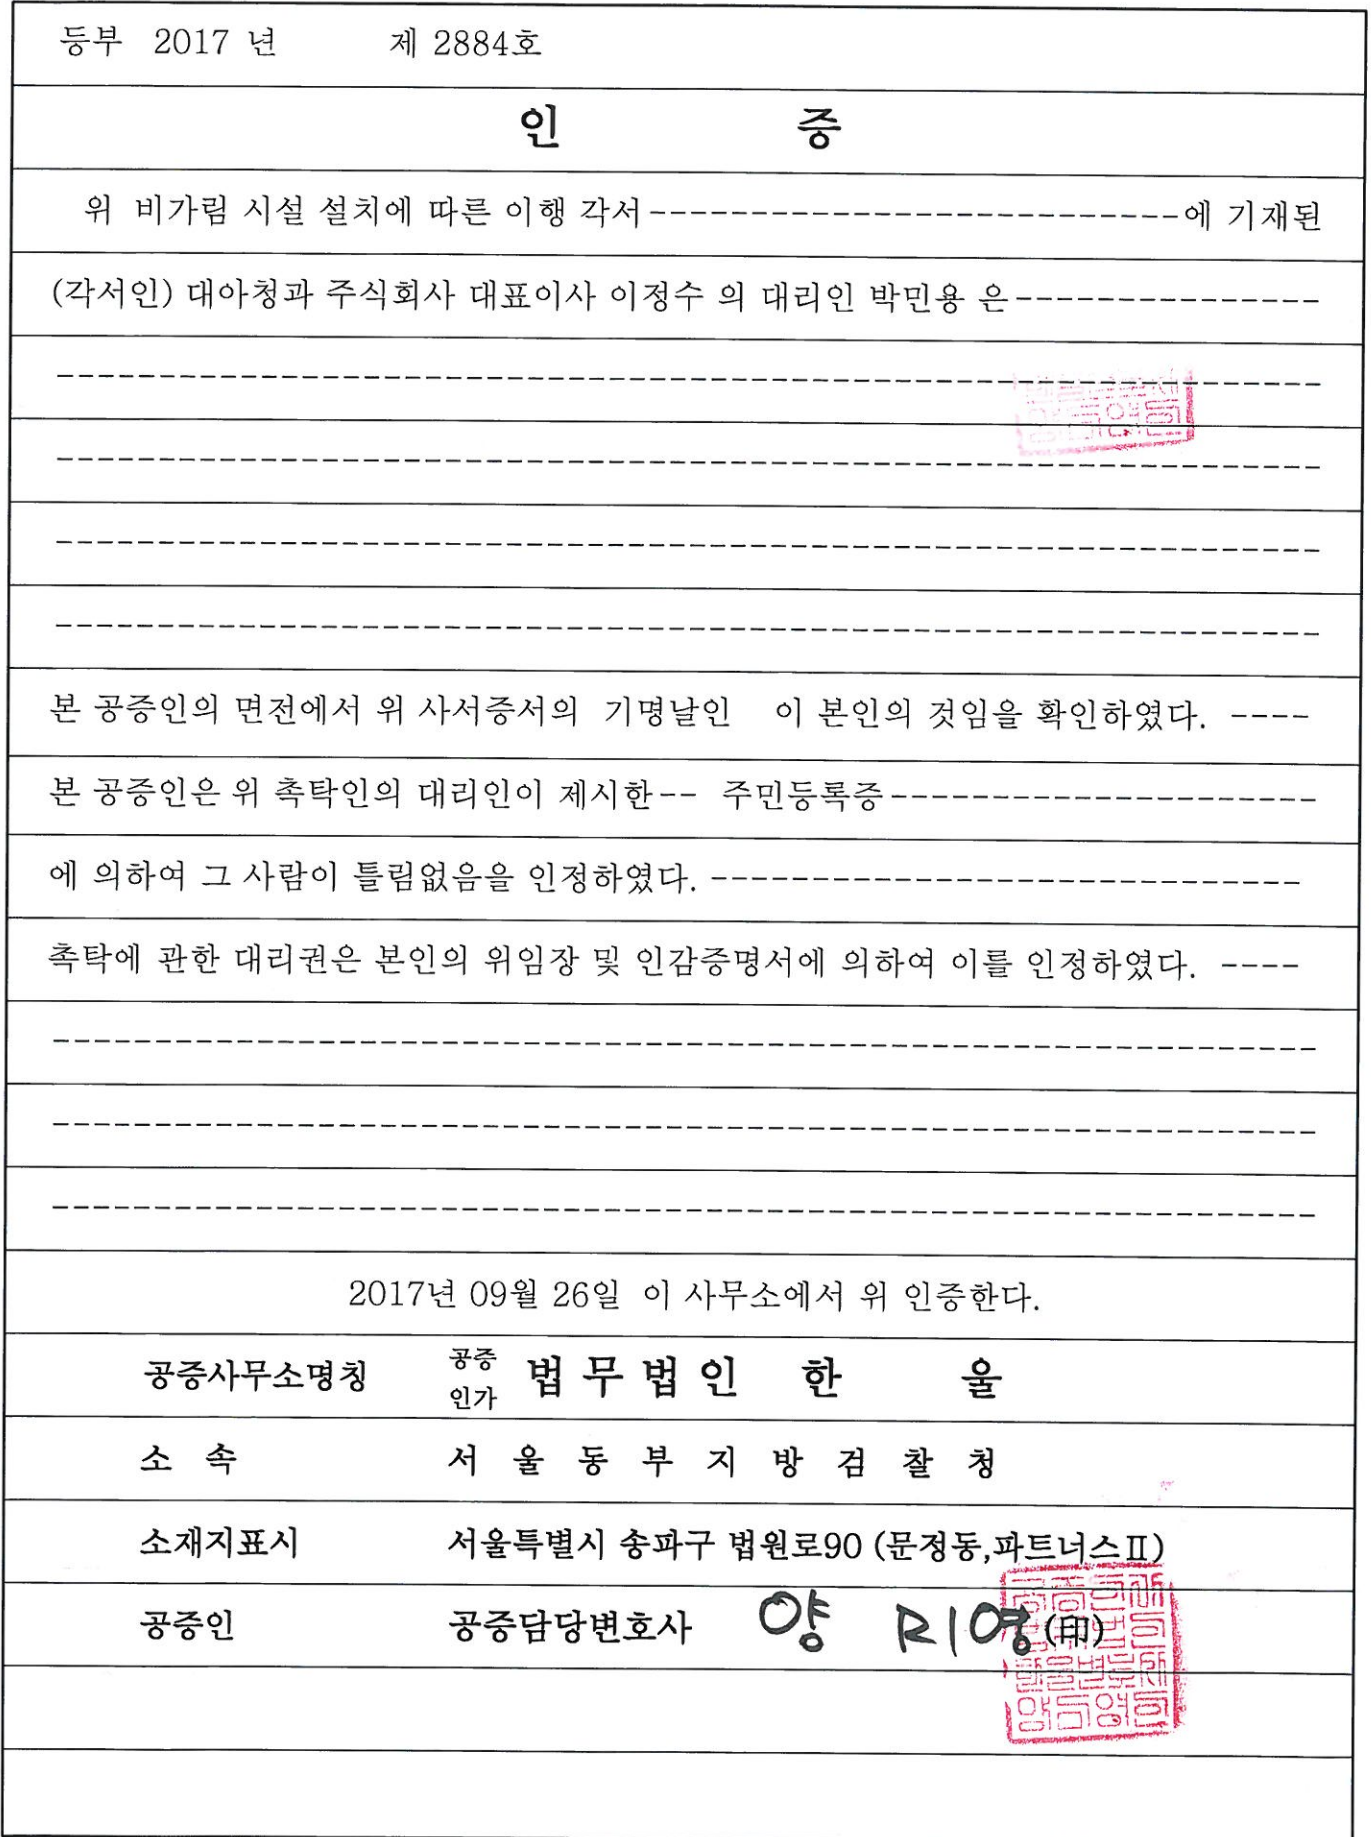 등부 2017 년 제 2884호
인 증
위 비가림 시설 설치에 따른 이행 각서--------------------------에 기재된
(각서인) 대아청과 주식회사 대표이사 이정수 의 대리인 박민용 은---------------
본 공증인의 면전에서 위 사서증서의 기명날인 이 본인의 것임을 확인하였다. ----
본 공증인은 위 촉탁인의 대리인이 제시한-- 주민등록증---------------------
에 의하여 그 사람이 틀림없음을 인정하였다. -----------------------------
촉탁에 관한 대리권은 본인의 위임장 및 인감증명서에 의하여 이를 인정하였다. ----
2017년 09월 26일 이 사무소에서 위 인증한다.
공증사무소명칭 공증인가 법무법인 한 울
소 속 서 울 동 부 지 방 검 찰 청
소재지표시 서울특별시 송파구 법원로90 (문정동,파트너스Ⅱ)
공증인 공증담당변호사 양 영 (印)